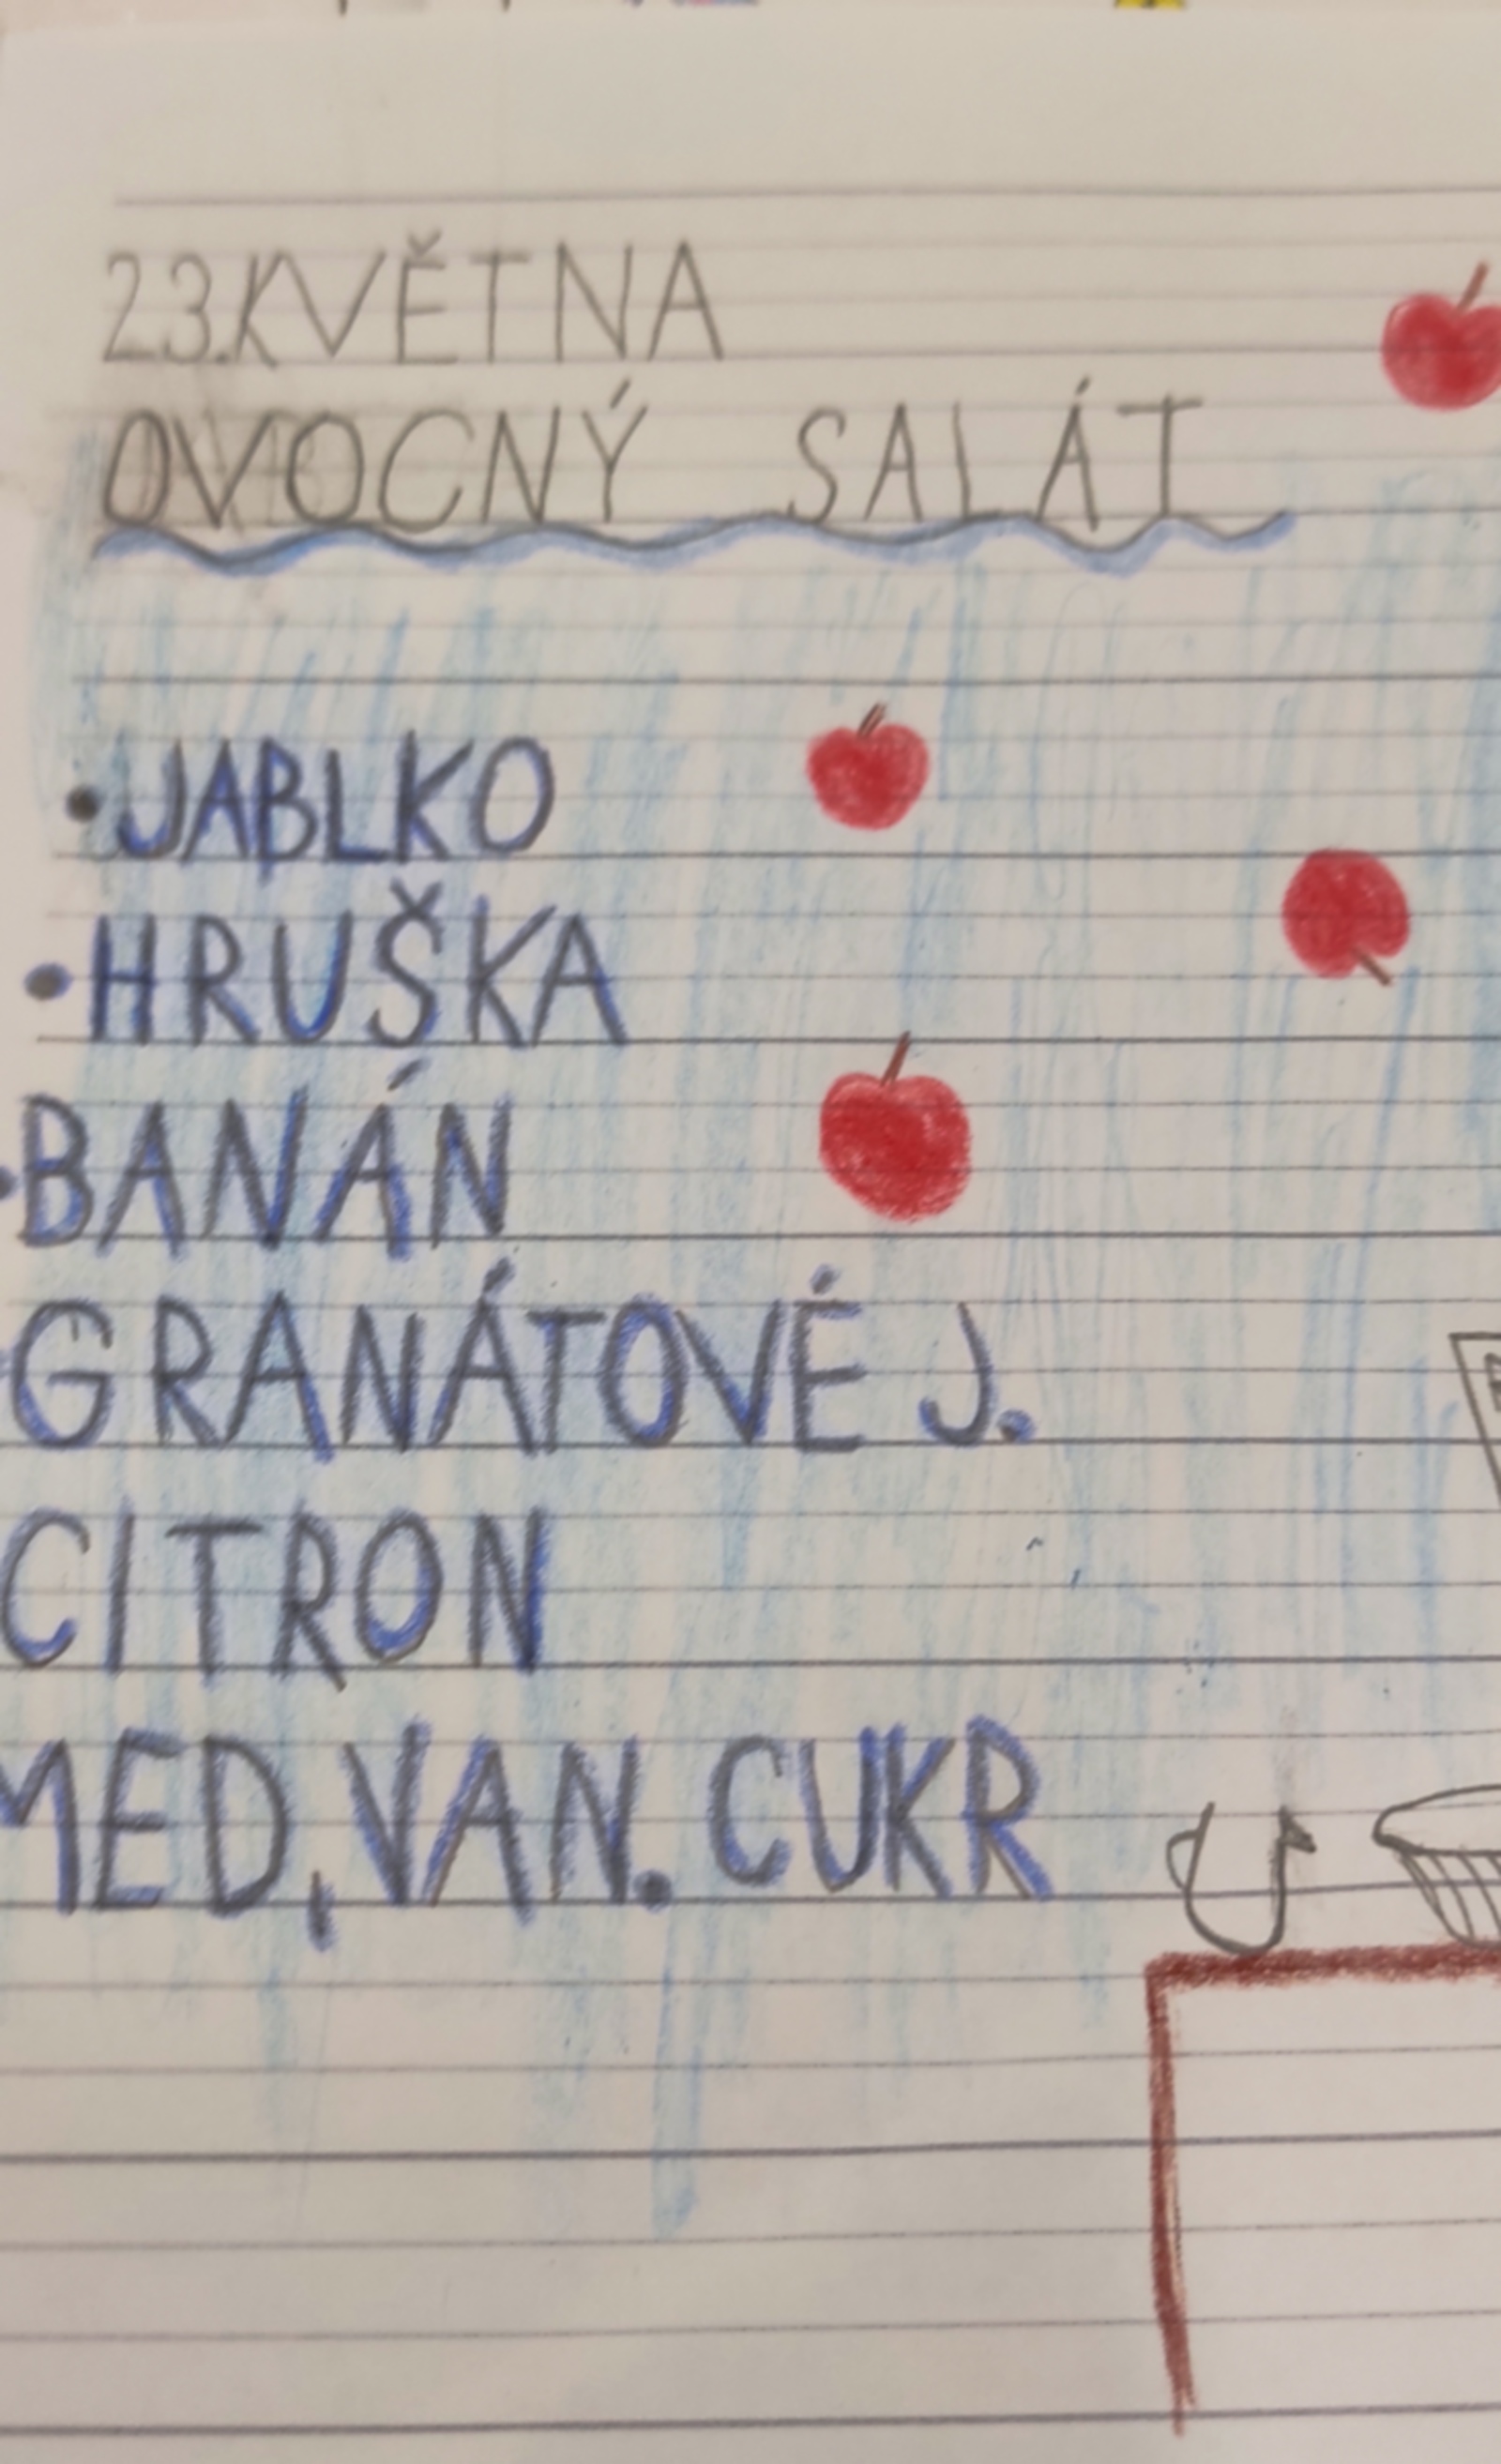 23.KVĚTNA
OVOCNÝ SALÁT
•JABLKO
•HRUŠKA
•BANÁN
GRANÁTOVÉ J.
CITRON
MED, VAN. CUKR